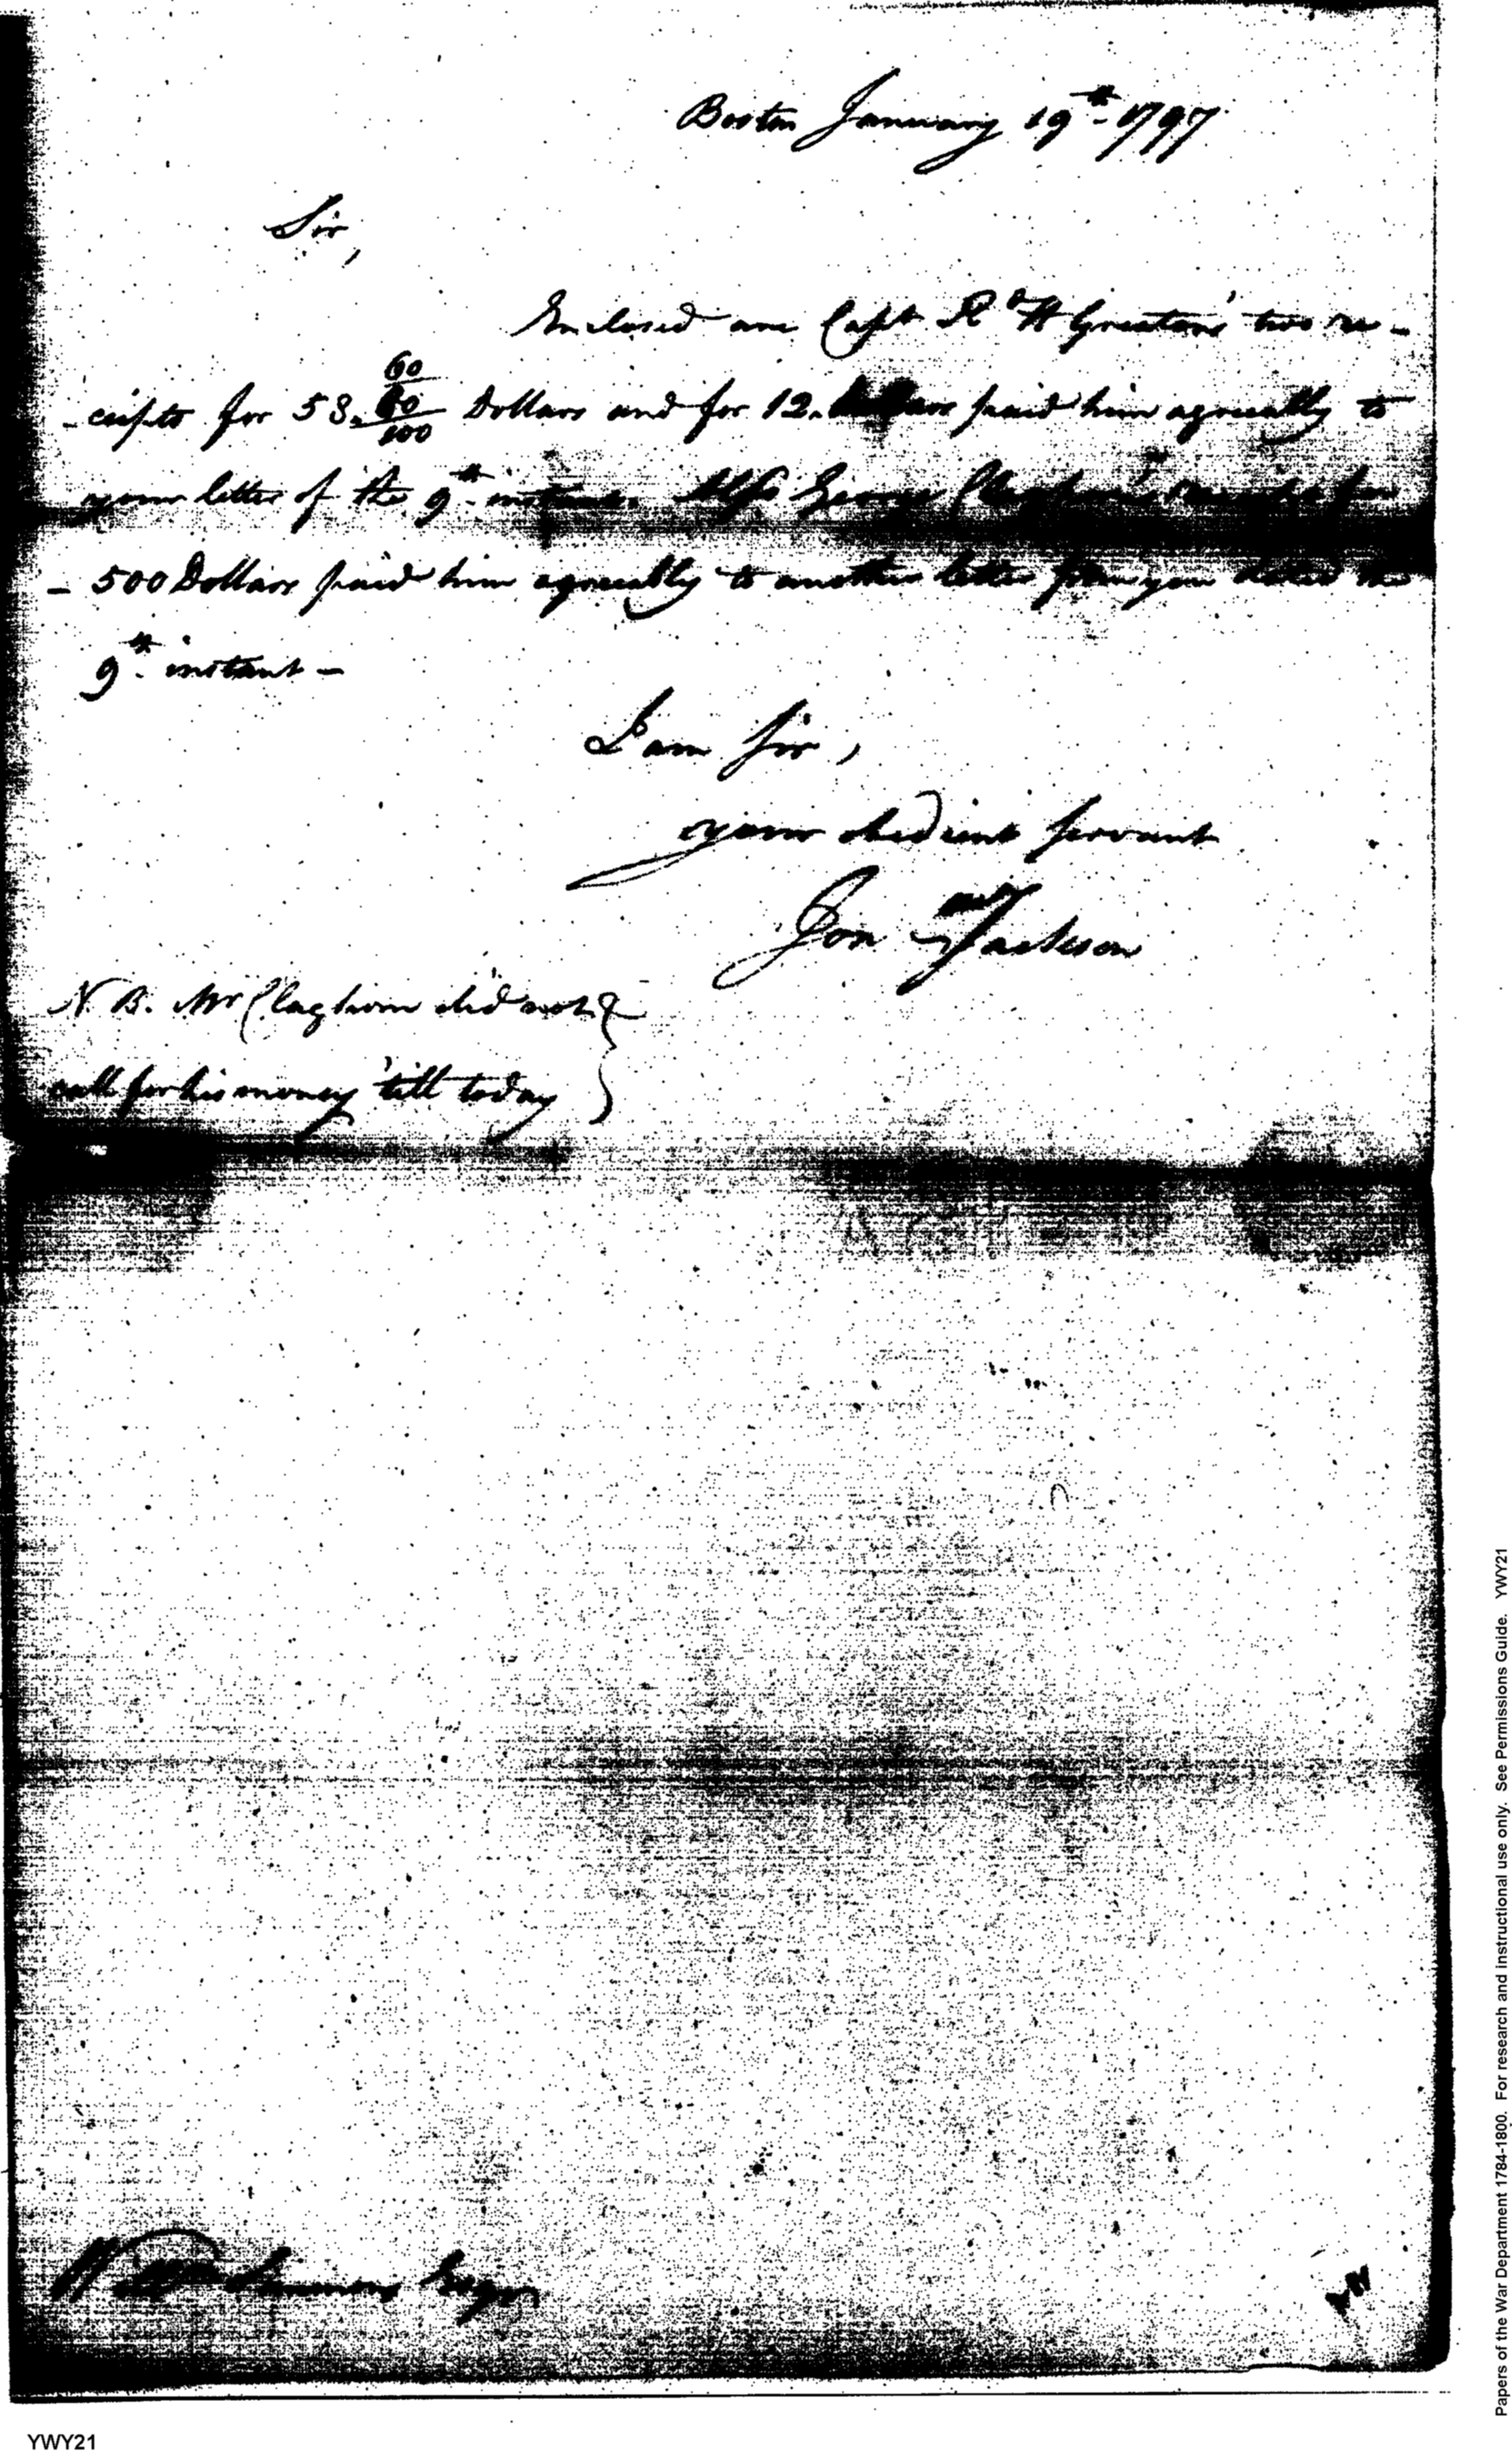 Boston January 19th 1797
Sir,
Enclosed are Capt Rd H Greatons' two re-
-ceipts for 53. 60 60/100 Dollars and for 12. Dollars paid him agreeably to
your letter of the 9th instant. Also George Claghorn's receipt for
- 500 Dollars paid him agreeably to another letter from you dated the
9th instant -
I am Sir,
your obedient servant
Jon Jackson
N B. Mr Claghorn did not
call for his money 'till today
Willm Simmons Esqr
YWY21
Papers of the War Department 1784-1800. For research and instructional use only. See Permissions Guide. YWY21